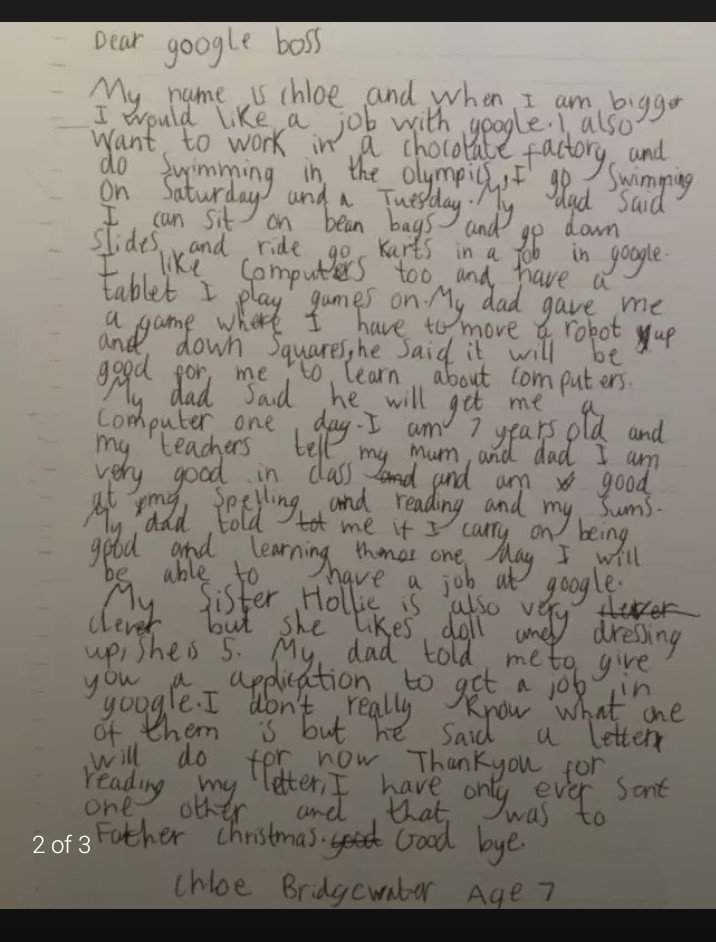 Dear google boss
My name is chloe and when I am bigger
I would like a job with google. I also
want to work in a chocolate factory and
do swimming in the olympics, I go Swimming
on Saturday and a Tuesday. My dad said
I can sit on bean bags and go down
slides and ride go karts in a job in google.
I like computers too and have a
tablet I play games on. My dad gave me
a game where I have to move a robot up
and down squares, he said it will be
good for me to learn about computers.
My dad said he will get me a
computer one day. I am 7 years old and
my teachers tell my mum and dad I am
very good in class and and am good
at my spelling and reading and my sums.
My dad told tot me if I carry on being
good and learning things one day I will
be able to have a job at google.
My sister Hollie is also very clever
clever but she likes doll and dressing
up, she is 5. My dad told me to give
you a application to get a job in
google. I don't really know what one
of them is but he said a letter
will do for now Thankyou for
reading my letter, I have only ever sent
one other and that was to
Father christmas. good Good bye.
Chloe Bridgewater Age 7
2 of 3